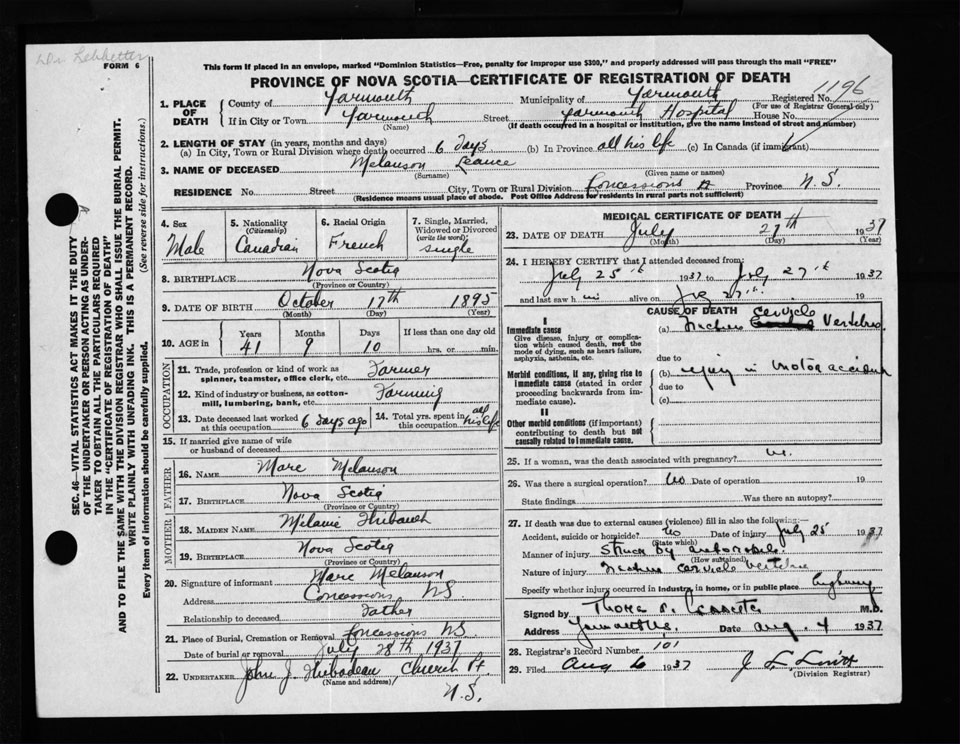 FORM 6
This form if placed in an envelope, marked "Dominion Statistics—Free, penalty for improper use $300," and properly addressed will pass through the mail "FREE"
PROVINCE OF NOVA SCOTIA—CERTIFICATE OF REGISTRATION OF DEATH
1196
SEC. 46—VITAL STATISTICS ACT MAKES IT THE DUTY
OF THE UNDERTAKER OR PERSON ACTING AS UNDER-
TAKER TO OBTAIN ALL THE PARTICULARS REQUIRED
IN THE "CERTIFICATE OF REGISTRATION OF DEATH"
AND TO FILE THE SAME WITH THE DIVISION REGISTRAR WHO SHALL ISSUE THE BURIAL PERMIT.
WRITE PLAINLY WITH UNFADING INK. THIS IS A PERMANENT RECORD.
Every item of information should be carefully supplied. (See reverse side for instructions.)
1. PLACE OF DEATH
County of Yarmouth Municipality of Yarmouth Registered No.
(For use of Registrar General only)
If in City or Town Yarmouth Street Yarmouth Hospital House No.
(Name) (If death occurred in a hospital or institution, give the name instead of street and number)
2. LENGTH OF STAY (in years, months and days)
(a) In City, Town or Rural Division where death occurred 6 days (b) In Province all his life (c) In Canada (if immigrant)
3. NAME OF DECEASED Melanson Leance
(Surname) (Given name or names)
RESIDENCE No. Street City, Town or Rural Division Concessions Province N.S.
(Residence means usual place of abode. Post Office Address for residents in rural parts not sufficient)
4. Sex Male
5. Nationality (Citizenship) Canadian
6. Racial Origin French
7. Single, Married, Widowed or Divorced (write the word) single
8. BIRTHPLACE Nova Scotia
(Province or Country)
9. DATE OF BIRTH October 17th 1895
(Month) (Day) (Year)
10. AGE in Years 41 Months 9 Days 10 If less than one day old hrs. or min.
OCCUPATION
11. Trade, profession or kind of work as spinner, teamster, office clerk, etc. Farmer
12. Kind of industry or business, as cotton-mill, lumbering, bank, etc. Farming
13. Date deceased last worked at this occupation 6 days ago
14. Total yrs. spent in this occupation all his life
15. If married give name of wife or husband of deceased
FATHER
16. NAME Marc Melanson
17. BIRTHPLACE Nova Scotia
(Province or Country)
MOTHER
18. MAIDEN NAME Melanie Thibault
19. BIRTHPLACE Nova Scotia
(Province or Country)
20. Signature of informant Marc Melanson
Address Concessions NS
Relationship to deceased Father
21. Place of Burial, Cremation or Removal Concessions NS
Date of burial or removal July 28th 1937
22. UNDERTAKER John J. Thibodeau, Church Pt
(Name and address)
N.S.
MEDICAL CERTIFICATE OF DEATH
23. DATE OF DEATH July 27th 1937
(Month) (Day) (Year)
24. I HEREBY CERTIFY that I attended deceased from:
July 25th 1937 to July 27th 1937
and last saw him alive on July 27th 19
CAUSE OF DEATH
I
Immediate cause
Give disease, injury or complica-
tion which caused death, not the
mode of dying, such as heart failure,
asphyxia, asthenia, etc.
(a) Fracture cervicle Vertebra
due to
Morbid conditions, if any, giving rise to
immediate cause (stated in order
proceeding backwards from im-
mediate cause).
(b) injury in motor accident
due to
(c)
II
Other morbid conditions (if important)
contributing to death but not
causally related to immediate cause.
25. If a woman, was the death associated with pregnancy?
26. Was there a surgical operation? No Date of operation 19
State findings Was there an autopsy?
27. If death was due to external causes (violence) fill in also the following:—
Accident, suicide or homicide? No Date of injury July 25 1937
(State which)
Manner of injury struck by automobile.
(How sustained)
Nature of injury Fracture cervicle vertebra
Specify whether injury occurred in industry, in home, or in public place highway
Signed by M.D.
Address Yarmouth N.S. Date Aug. 4 1937
28. Registrar's Record Number 101
29. Filed Aug 6 1937
(Division Registrar)